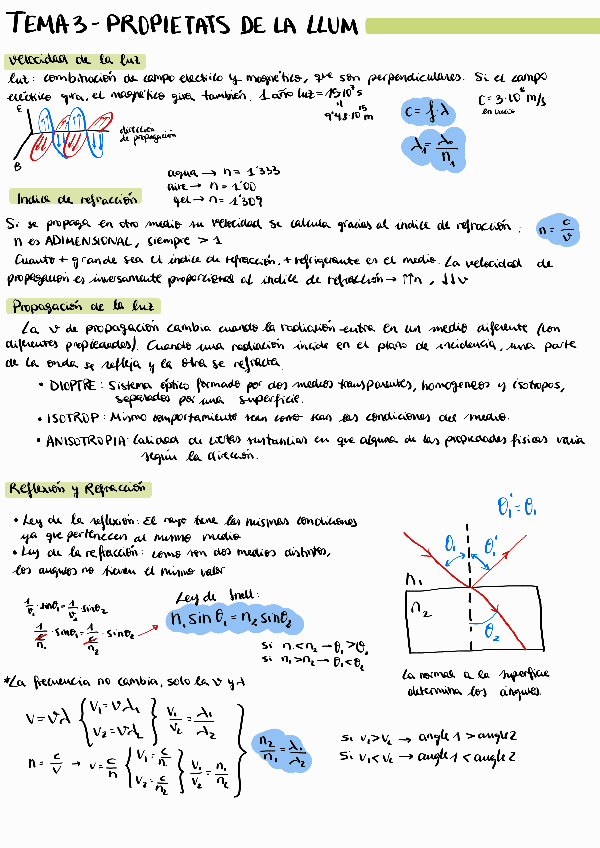 TEMA 3 - PROPIETATS DE LA LLUM
Velocidad de la luz
luz: combinación de campo electrico y magnético, que son perpendiculares. Si el campo
eléctrico gira, el magnético gira también. 1 año luz = 
9'48·10¹⁵ m
c = f·λ
c = 3·10⁸ m/s
en vacío
E
dirección
de propagación
B
λ₁ = λ₀/n₁
agua → n = 1'333
aire → n = 1'00
gel → n = 1'309
Indice de refracción
Si se propaga en otro medio su velocidad se calcula gracias al indice de refracción:
n = c/v
n es ADIMENSIONAL, siempre > 1
Cuanto + grande sea el índice de refracción, + refrigerante es el medio. La velocidad de
propagación es inversamente proporcional al indice de refracción → ↑↑n, ↓↓v
Propagación de la luz
La v de propagación cambia cuando la radiación entra en un medio diferente (con
diferentes propiedades). Cuando una radiación incide en el plano de incidencia, una parte
de la onda se refleja y la otra se refracta.
• DIOPTRE: Sistema óptico formado por dos medios transparentes, homogeneos y isotopos,
separados por una superficie.
• ISOTROP: Mismo comportamiento sean como sean las condiciones del medio.
• ANISOTROPIA: Calidad de ciertas sustancias en que alguna de las propiedades físicas varia
según la dirección.
Reflexión y Refracción
• Ley de la reflexión: El rayo tiene las mismas condiciones
ya que pertenecen al mismo medio
• Ley de la refracción: como son dos medios distintos,
los angulos no tienen el mismo valor
θ₁' = θ₁
θ₁ θ₁'
n₁
n₂
θ₂
Ley de Snell:
1/v₁ · sinθ₁ = 1/v₂ · sinθ₂
1/(c/n₁) · sinθ₁ = 1/(c/n₂) · sinθ₂
n₁ sin θ₁ = n₂ sin θ₂
si n₁ < n₂ → θ₁ > θ₂
si n₁ > n₂ → θ₁ < θ₂
La normal a la superficie
determina los ángulos.
*La frecuencia no cambia, solo la v y λ
V = νλ { V₁ = νλ₁ V₂ = νλ₂ } V₁/V₂ = λ₁/λ₂
n = c/v → v = c/n { V₁ = c/n₁ V₂ = c/n₂ } V₁/V₂ = n₂/n₁
n₂/n₁ = λ₁/λ₂
si v₁ > v₂ → angle 1 > angle 2
si v₁ < v₂ → angle 1 < angle 2